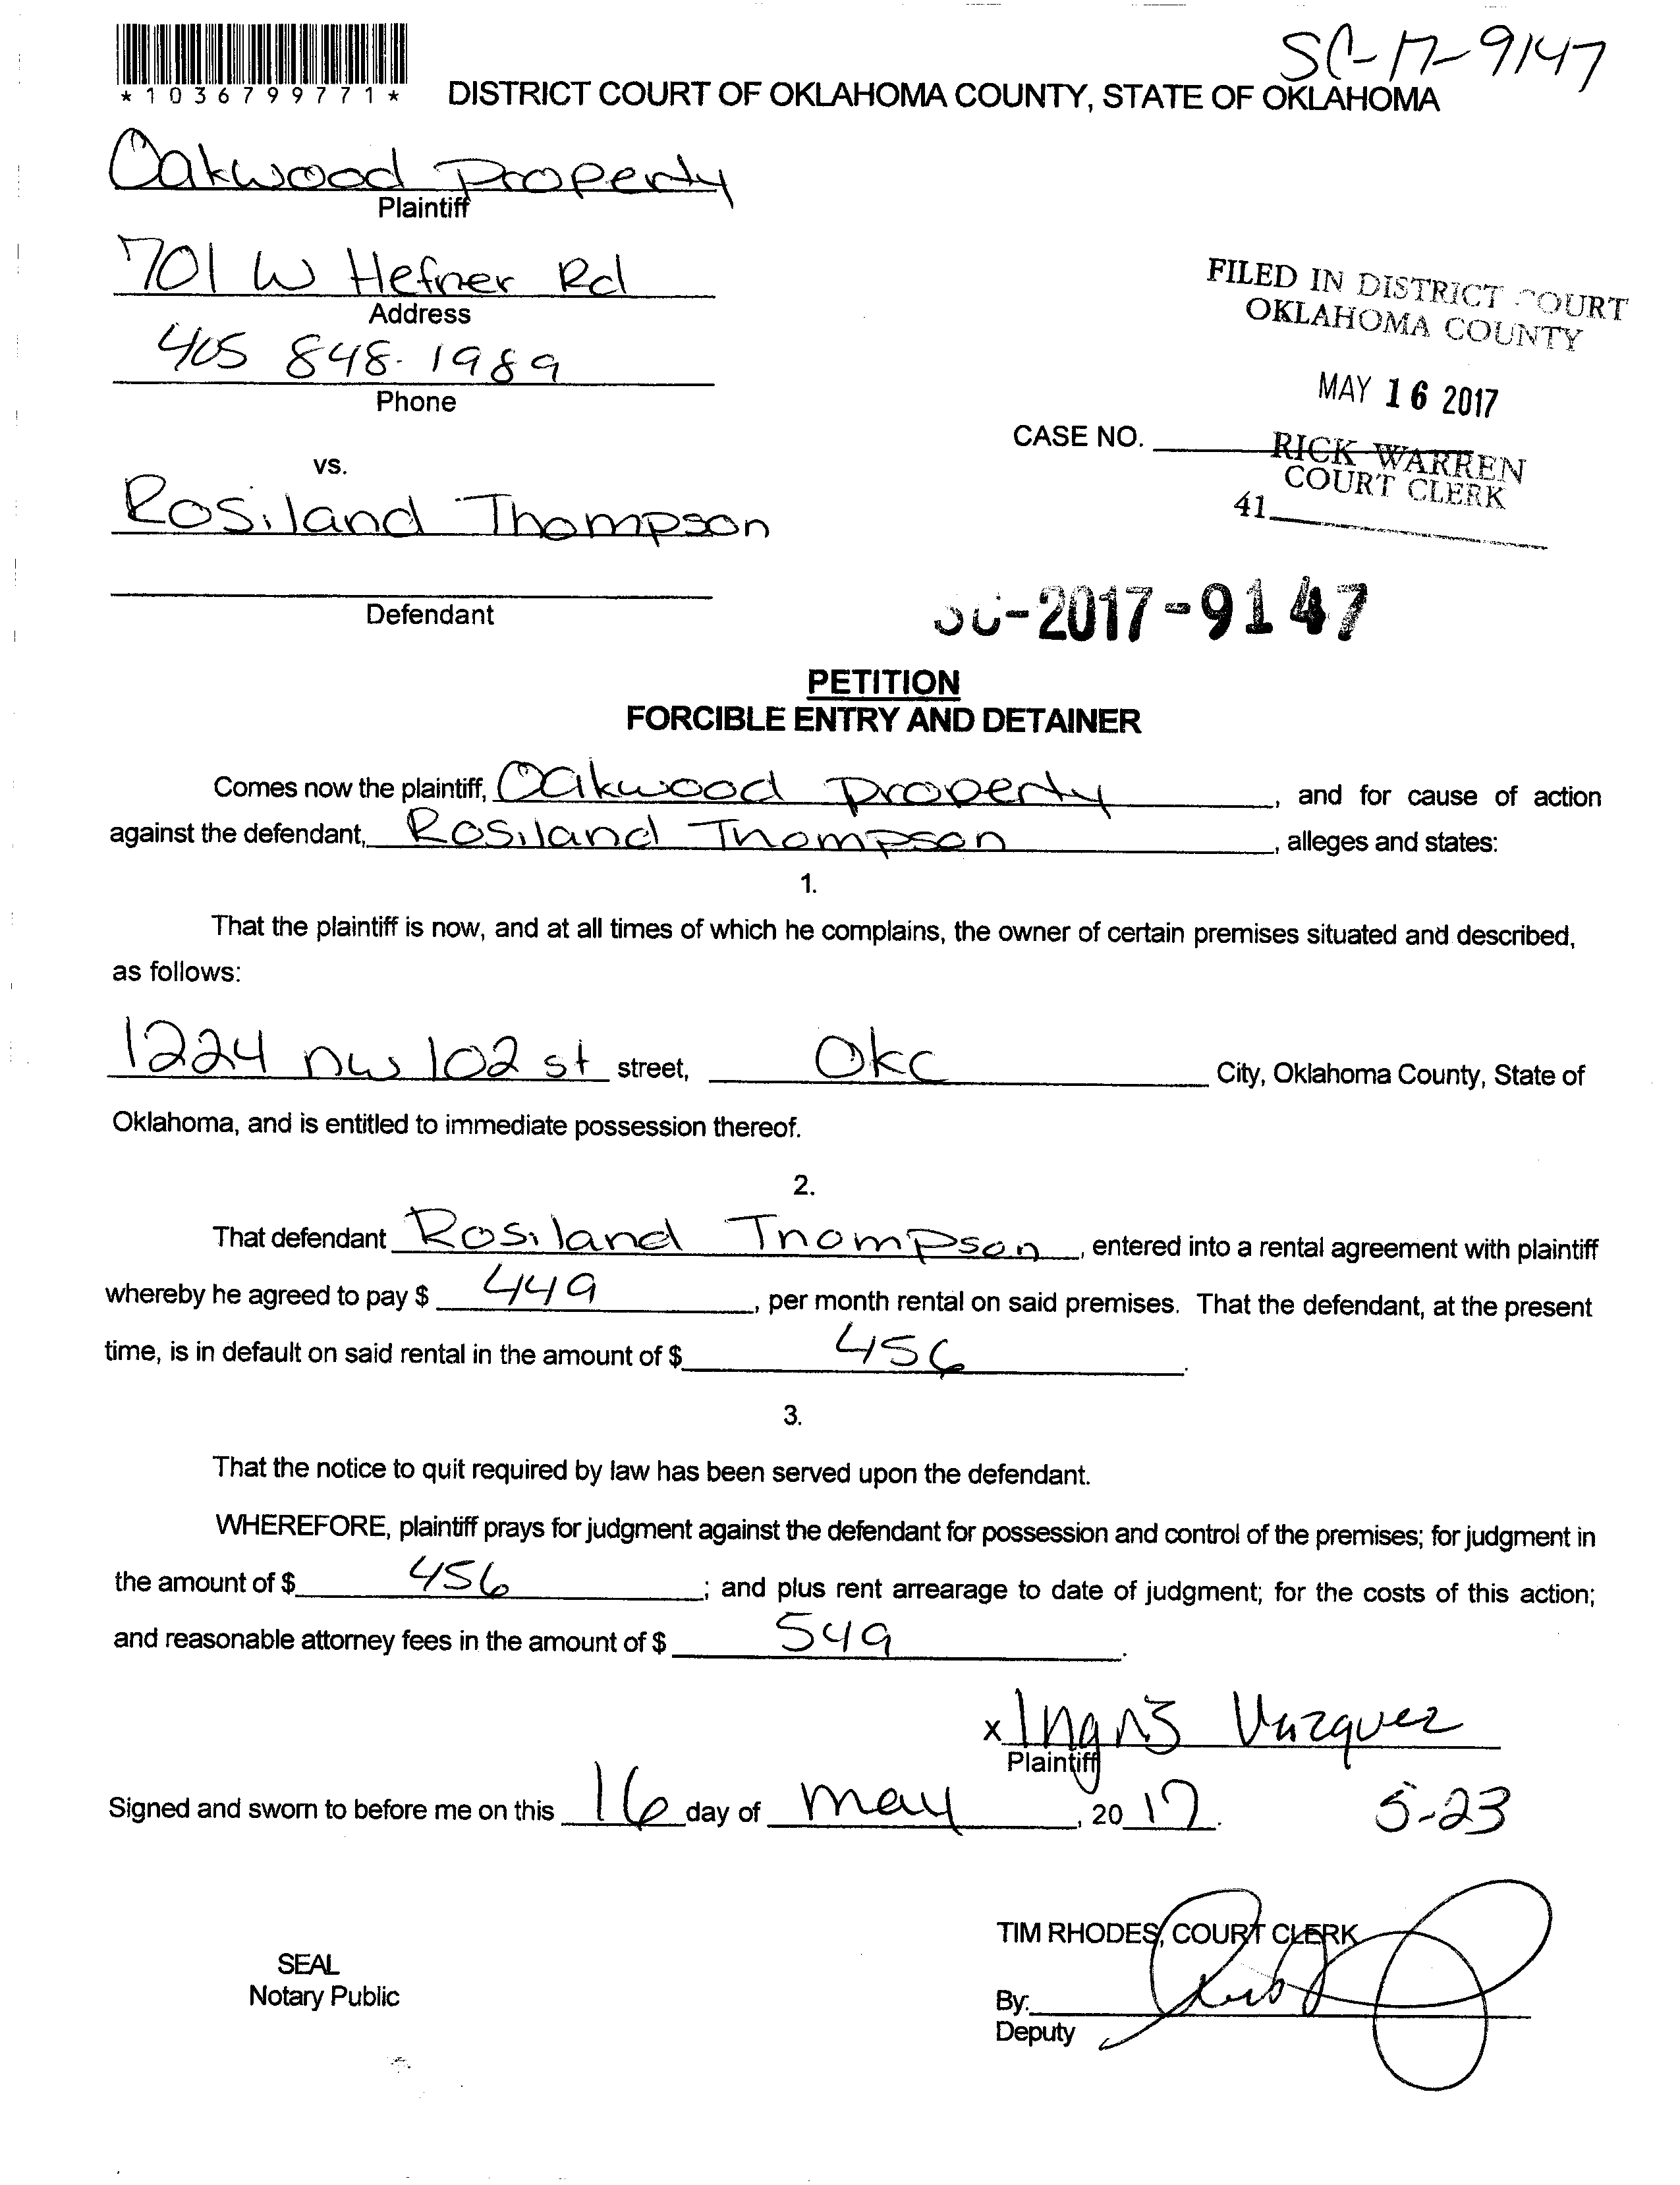 SC-17-9147
*1036799771*
DISTRICT COURT OF OKLAHOMA COUNTY, STATE OF OKLAHOMA
Oakwood Property
Plaintiff
701 W Hefner Rd
Address
405 848-1989
Phone
FILED IN DISTRICT COURT
OKLAHOMA COUNTY
MAY 16 2017
CASE NO.
RICK WARREN
COURT CLERK
41
vs.
Rosiland Thompson
Defendant
SC-2017-9147
PETITION
FORCIBLE ENTRY AND DETAINER
Comes now the plaintiff, Oakwood Property, and for cause of action
against the defendant, Rosiland Thompson, alleges and states:
1.
That the plaintiff is now, and at all times of which he complains, the owner of certain premises situated and described,
as follows:
1224 NW 102 st street, OKC City, Oklahoma County, State of
Oklahoma, and is entitled to immediate possession thereof.
2.
That defendant Rosiland Thompson, entered into a rental agreement with plaintiff
whereby he agreed to pay $ 449, per month rental on said premises. That the defendant, at the present
time, is in default on said rental in the amount of $ 456.
3.
That the notice to quit required by law has been served upon the defendant.
WHEREFORE, plaintiff prays for judgment against the defendant for possession and control of the premises; for judgment in
the amount of $ 456; and plus rent arrearage to date of judgment; for the costs of this action;
and reasonable attorney fees in the amount of $ 549.
x Ingris Vazquez
Plaintiff
Signed and sworn to before me on this 16 day of may, 2017.
5-23
TIM RHODES, COURT CLERK
SEAL
Notary Public
By:
Deputy